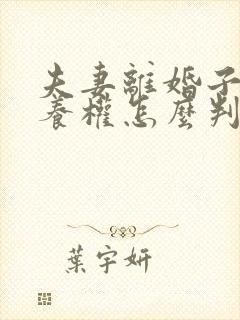 夫妻離婚子
養權怎麼判
葉宇妍